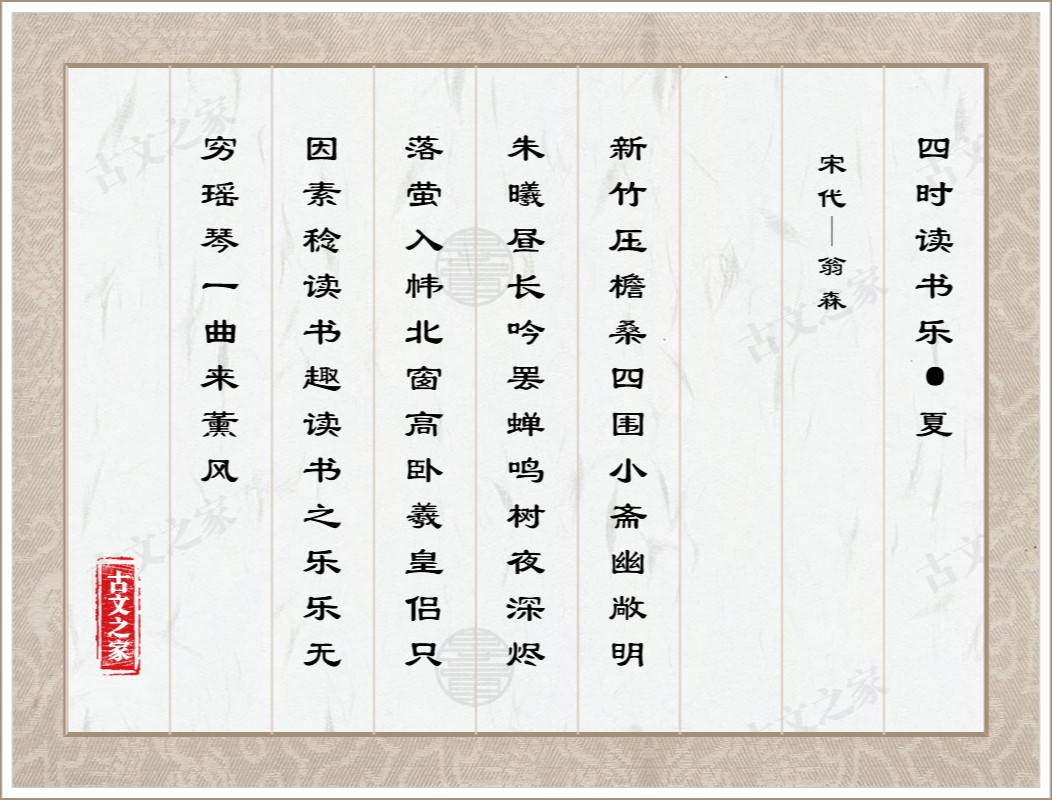 四时读书乐●夏
宋代—翁森
新竹压檐桑四围小斋幽敞明
朱曦昼长吟罢蝉鸣树夜深烬
落萤入帏北窗高卧羲皇侣只
因素稔读书趣读书之乐乐无
穷瑶琴一曲来薰风
古文之家
古文之家
古文之家
古文之家
古文之家
古文之家